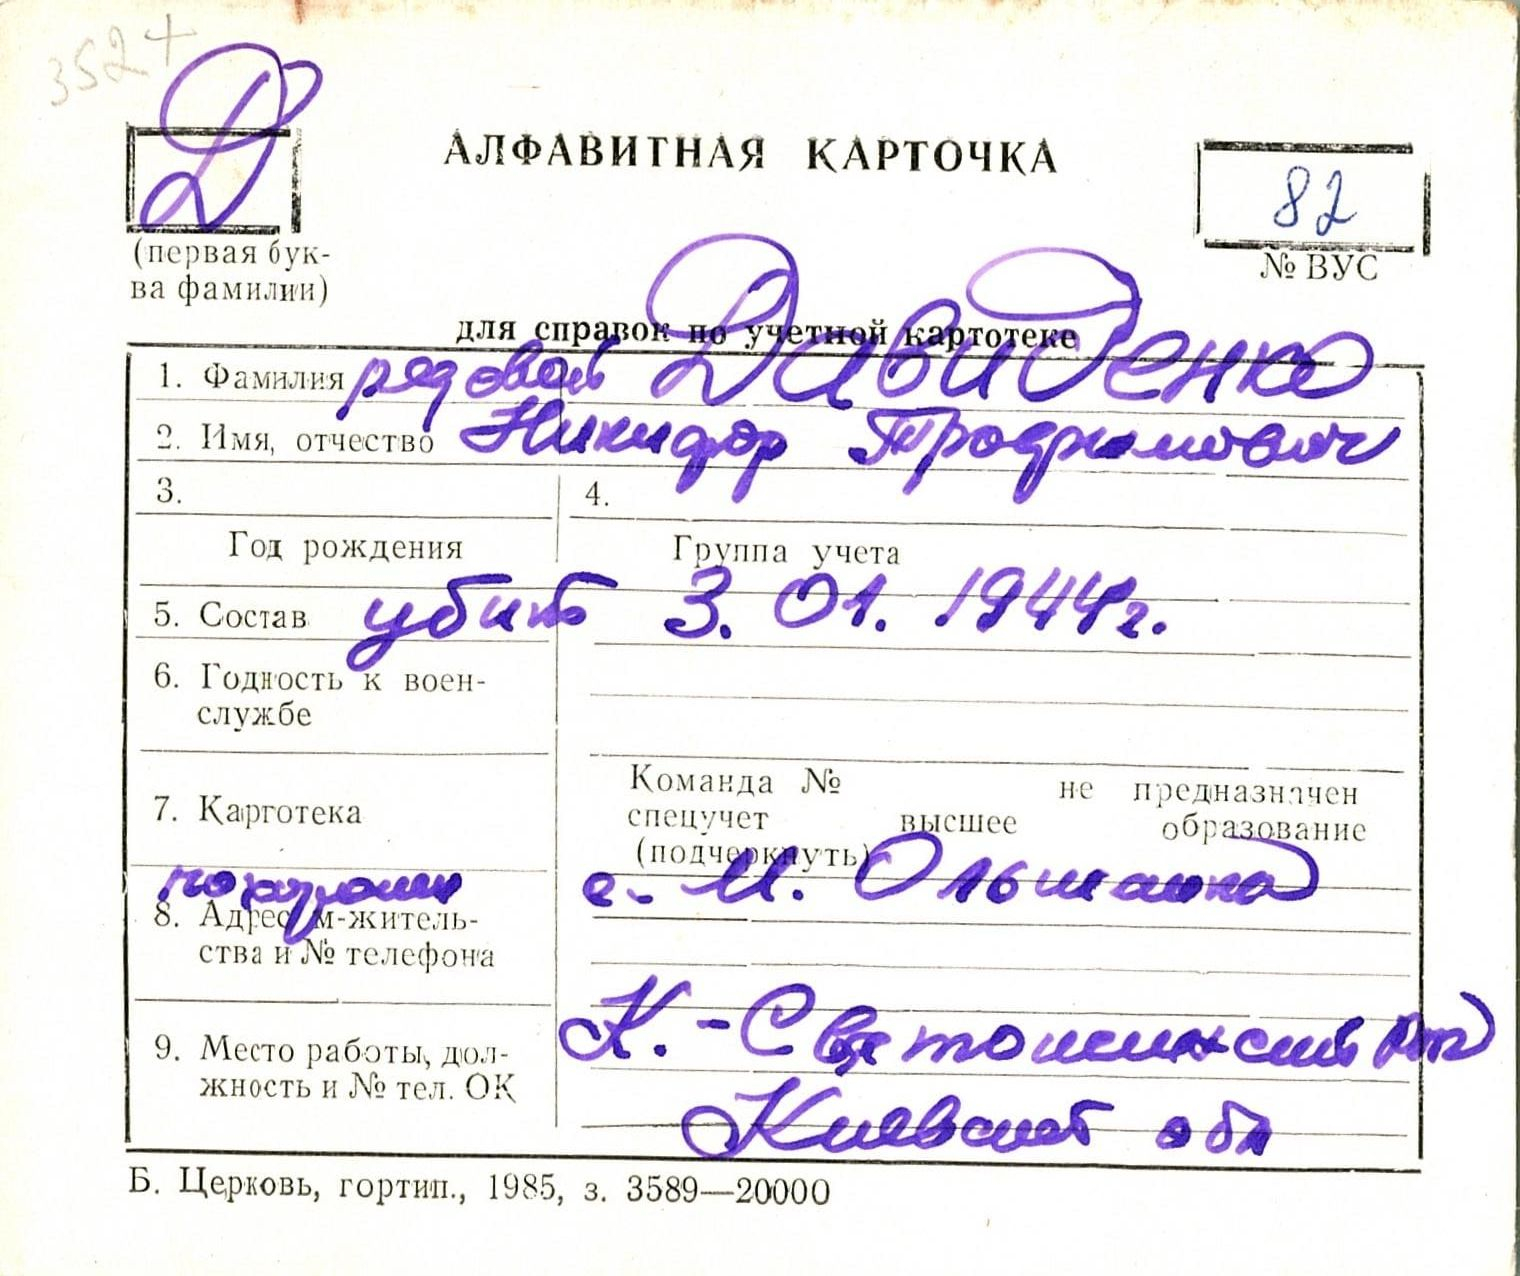 352+
Д
АЛФАВИТНАЯ КАРТОЧКА
82
(первая бук-
ва фамилии)
№ ВУС
для справок по учетной картотеке
1. Фамилия рядовой Давиденко
2. Имя, отчество Никифор Трофимович
3. 4.
Год рождения Группа учета
5. Состав убит 3. 01. 1944г.
6. Годность к воен-
службе
Команда № не предназначен
7. Картотека спецучет высшее образование
(подчеркнуть)
похоронен с. М. Ольшанка
8. Адрес м-житель-
ства и № телефона
К.-Святошинский
9. Место работы, дол-
жность и № тел. ОК
Киевской обл
Б. Церковь, гортип., 1985, з. 3589—20000